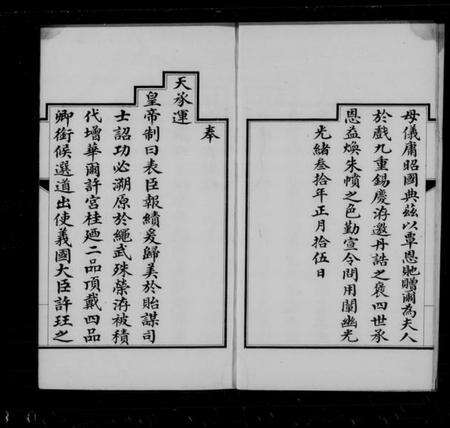 母儀庸昭國典茲以覃恩貤贈爾為夫人
於戲九重錫慶洊邀丹誥之褒四世承
恩益煥朱幩之色勤宣令問用闡幽光
光緒叁拾年正月拾伍日
奉
天承運
皇帝制曰表臣報績爰歸美於貽謀司
士詔功必溯原於繩武殊榮洊被積
代增華爾許宮桂廼二品頂戴四品
卿銜候選道出使義國大臣許玨之